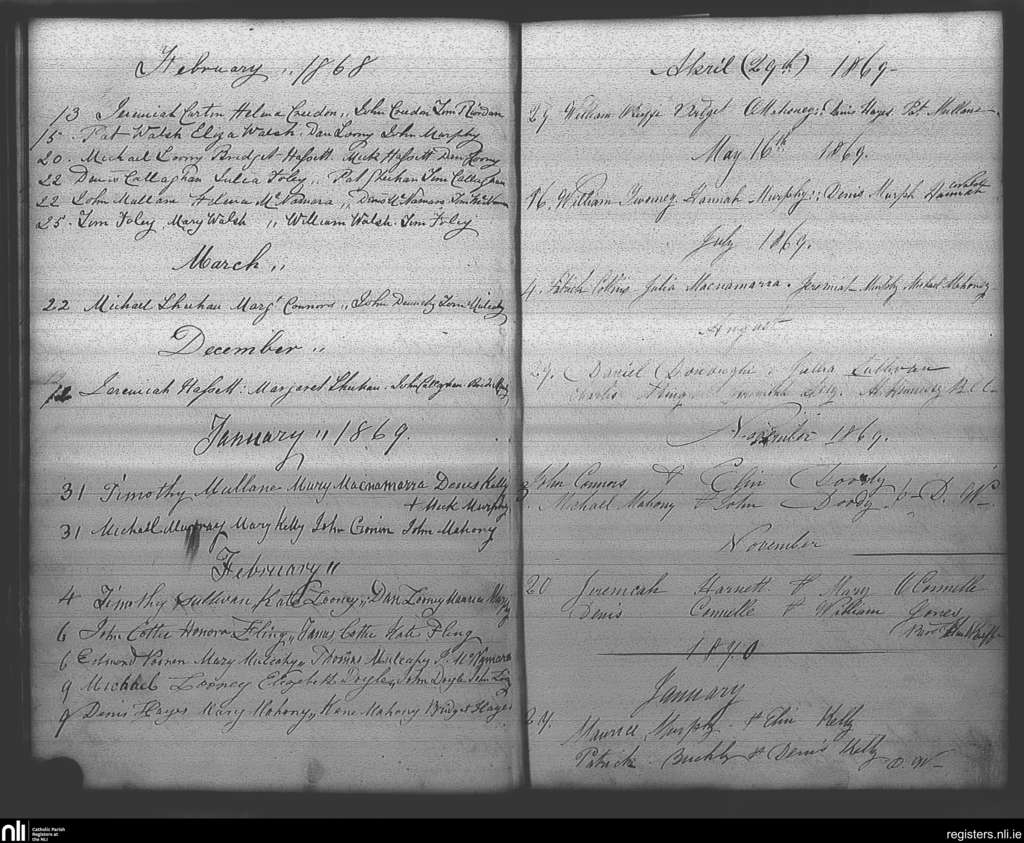 February ,, 1868
13 Jeremiah Helena Condon ,, John Condon Tom Riordan
15. Pat Walsh Eliza Walsh. Dan Loony John Murphy
20. Michael Loony Bridget Hassett. Mick Hassett Dan Loony
22 Denis Callaghan Julia Foley ,, Pat Sheehan Tim Callaghan
22 John Mullane Helena McNamara ,, Denis McNamara
25. Tim Foley, Mary Walsh ,, William Walsh. Tim Foley
March ,,
22 Michael Sheehan Margt Connors ,, John Tom Mulcahy
December ,,
12 Jeremiah Hassett: Margaret Sheehan. John Callaghan
January ,, 1869.
31 Timothy Mullane Mary Macnamarra Denis Kelly
+ Mick Murphy
31 Michael Murray Mary Kelly John Cronin John Mahony
February ,,
4 Timothy Sullivan Kate Looney ,, Dan Looney Maurice
6 John Cotter Honora Fling ,, James Cotter Kate Fling
6 Edmond Noonan Mary Mulcahy ,, Thomas Mulcahy P. McNamara
9 Michael Looney Elizabeth Doyle ,, John Doyle John
9 Denis Hayes Mary Mahony ,, Kane Mahony Bridget Hayes
April (29th) 1869-
29 William Keeffe Bridget O Mahoney: Denis Hayes Pat Mullane
May 16th 1869.
16. William Twomey. Hannah Murphy ; Denis Murphy Hannah
July 1869.
4. Patrick Collins Julia Macnamarra. Jeremiah Murphy Michael Mahoney
August
29. Daniel Donoughue & Julia Sullivan
Charles Fling C.C.
November 1869.
3 John Connors & Ellen Doody
Michael Mahony & John Doody by D. W.
November
20 Jeremiah Harnett & Mary O Connelle
Denis Connelle & William Jones
1870
January
27. Maurice Murphy & Ellen Kelly
Patrick Buckley & Denis Kelly D. W
nli
Catholic Parish
Registers at
the NLI
registers.nli.ie